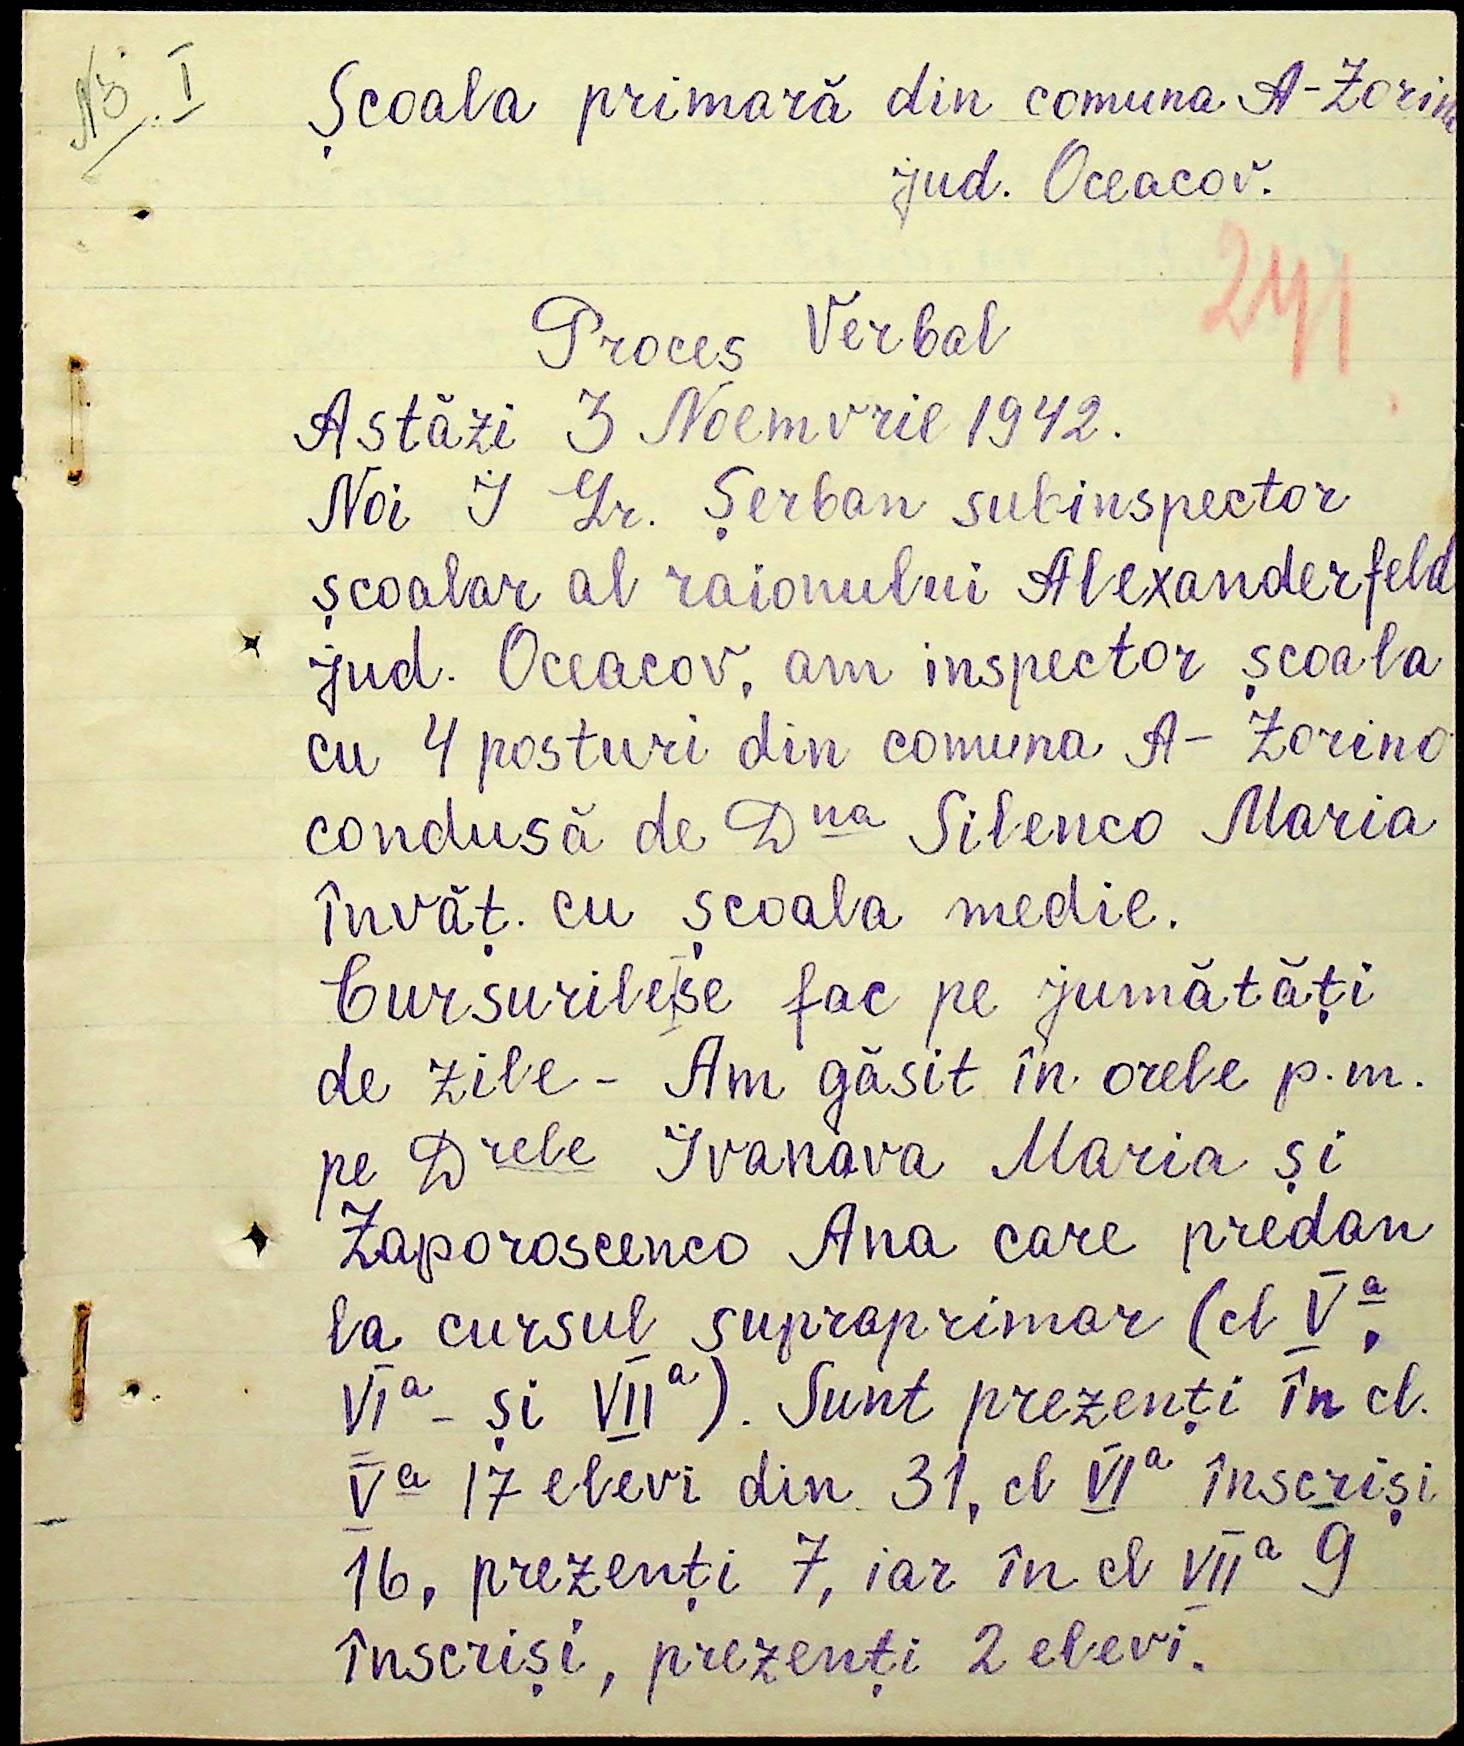 No. I
Școala primară din comuna A-Zorino
jud. Oceacov.
241
Proces Verbal
Astăzi 3 Noemvrie 1942.
Noi I Gr. Șerban subinspector
școalar al raionului Alexanderfeld
jud. Oceacov, am inspector școala
cu 4 posturi din comuna A- Zorino
condusă de Dna Silenco Maria
învăț. cu școala medie.
Cursurile|se fac pe jumătăți
de zile - Am găsit în orele p.m.
pe Drele Ivanava Maria și
Zaporoscenco Ana care predan
la cursul supraprimar (cl Va,
VIa - și VIIa). Sunt prezenți în cl.
Va 17 elevi din 31, cl VIa înscriși
16, prezenți 7, iar în cl VIIa 9
înscriși, prezenți 2 elevi.